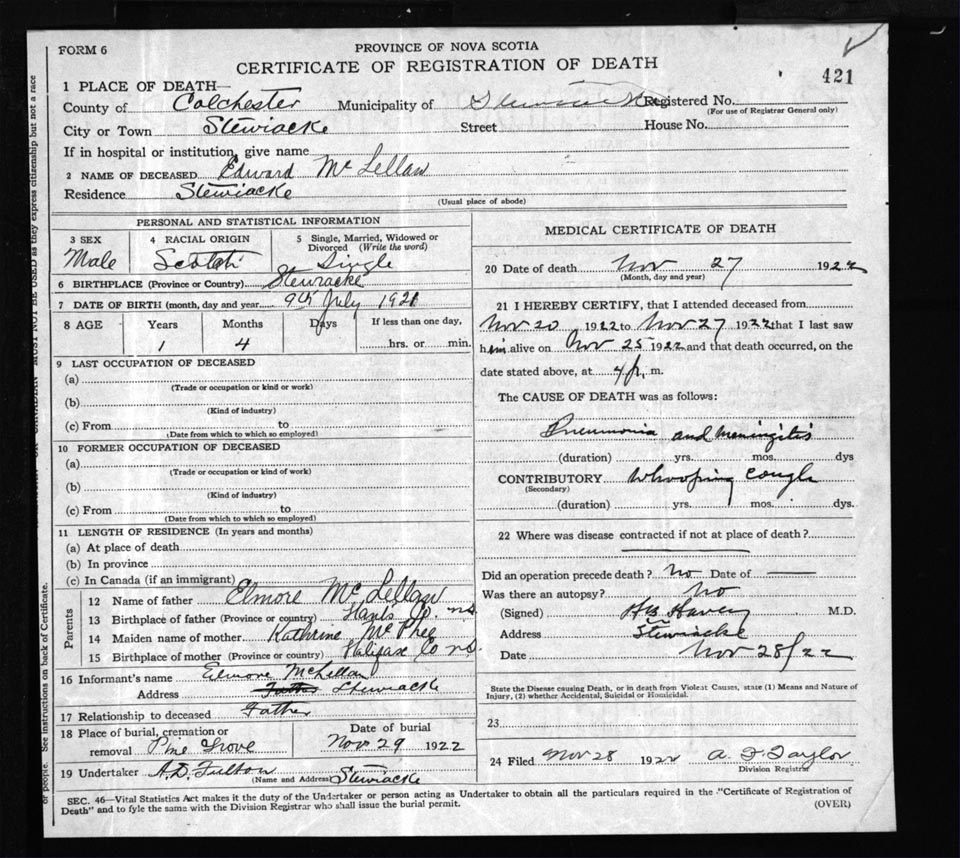 FORM 6
PROVINCE OF NOVA SCOTIA
CERTIFICATE OF REGISTRATION OF DEATH
421
1 PLACE OF DEATH—
County of Colchester Municipality of Stewiacke Registered No.
(For use of Registrar General only)
City or Town Stewiacke Street House No.
If in hospital or institution, give name
2 NAME OF DECEASED Edward McLellan
Residence Stewiacke
(Usual place of abode)
PERSONAL AND STATISTICAL INFORMATION
3 SEX 4 RACIAL ORIGIN 5 Single, Married, Widowed or Divorced (Write the word)
Male Scotch Single
6 BIRTHPLACE (Province or Country) Stewiacke
7 DATE OF BIRTH (month, day and year) 9th July 1921
8 AGE Years Months Days If less than one day,
1 4 hrs. or min.
9 LAST OCCUPATION OF DECEASED
(a)
(Trade or occupation or kind or work)
(b)
(Kind of industry)
(c) From to
(Date from which to which so employed)
10 FORMER OCCUPATION OF DECEASED
(a)
(Trade or occupation or kind of work)
(b)
(Kind of industry)
(c) From to
(Date from which to which so employed)
11 LENGTH OF RESIDENCE (In years and months)
(a) At place of death
(b) In province
(c) In Canada (if an immigrant)
Parents
12 Name of father Elmore McLellan
13 Birthplace of father (Province or country) Hants Co. ns
14 Maiden name of mother Kathrine McPhee
15 Birthplace of mother (Province or country) Halifax Co ns.
16 Informant's name Elmore McLellan
Address Father Stewiacke
17 Relationship to deceased Father
18 Place of burial, cremation or Date of burial
removal Pine Grove Nov 29 1922
19 Undertaker A.D. Fulton (Name and Address) Stewiacke
MEDICAL CERTIFICATE OF DEATH
20 Date of death Nov 27 1922
(Month, day and year)
21 I HEREBY CERTIFY, that I attended deceased from
Nov 20 1922 to Nov 27 1922 that I last saw
him alive on Nov 25 1922 and that death occurred, on the
date stated above, at 4 p. m.
The CAUSE OF DEATH was as follows:
Pneumonia and meningitis
(duration) yrs. mos. dys
CONTRIBUTORY Whooping cough
(Secondary)
(duration) yrs. mos. dys.
22 Where was disease contracted if not at place of death?
Did an operation precede death? No Date of
Was there an autopsy? No
(Signed) M.D.
Address Stewiacke
Date Nov 28/22
State the Disease causing Death, or in death from Violent Causes, state (1) Means and Nature of
Injury, (2) whether Accidental, Suicidal or Homicidal.
23
24 Filed Nov 28 1922 A. F. Taylor
Division Registrar
SEC. 46—Vital Statistics Act makes it the duty of the Undertaker or person acting as Undertaker to obtain all the particulars required in the "Certificate of Registration of
Death" and to fyle the same with the Division Registrar who shall issue the burial permit.
(OVER)
or people. See instructions on back of Certificate.
MUST NOT BE USED as they express citizenship but not a race